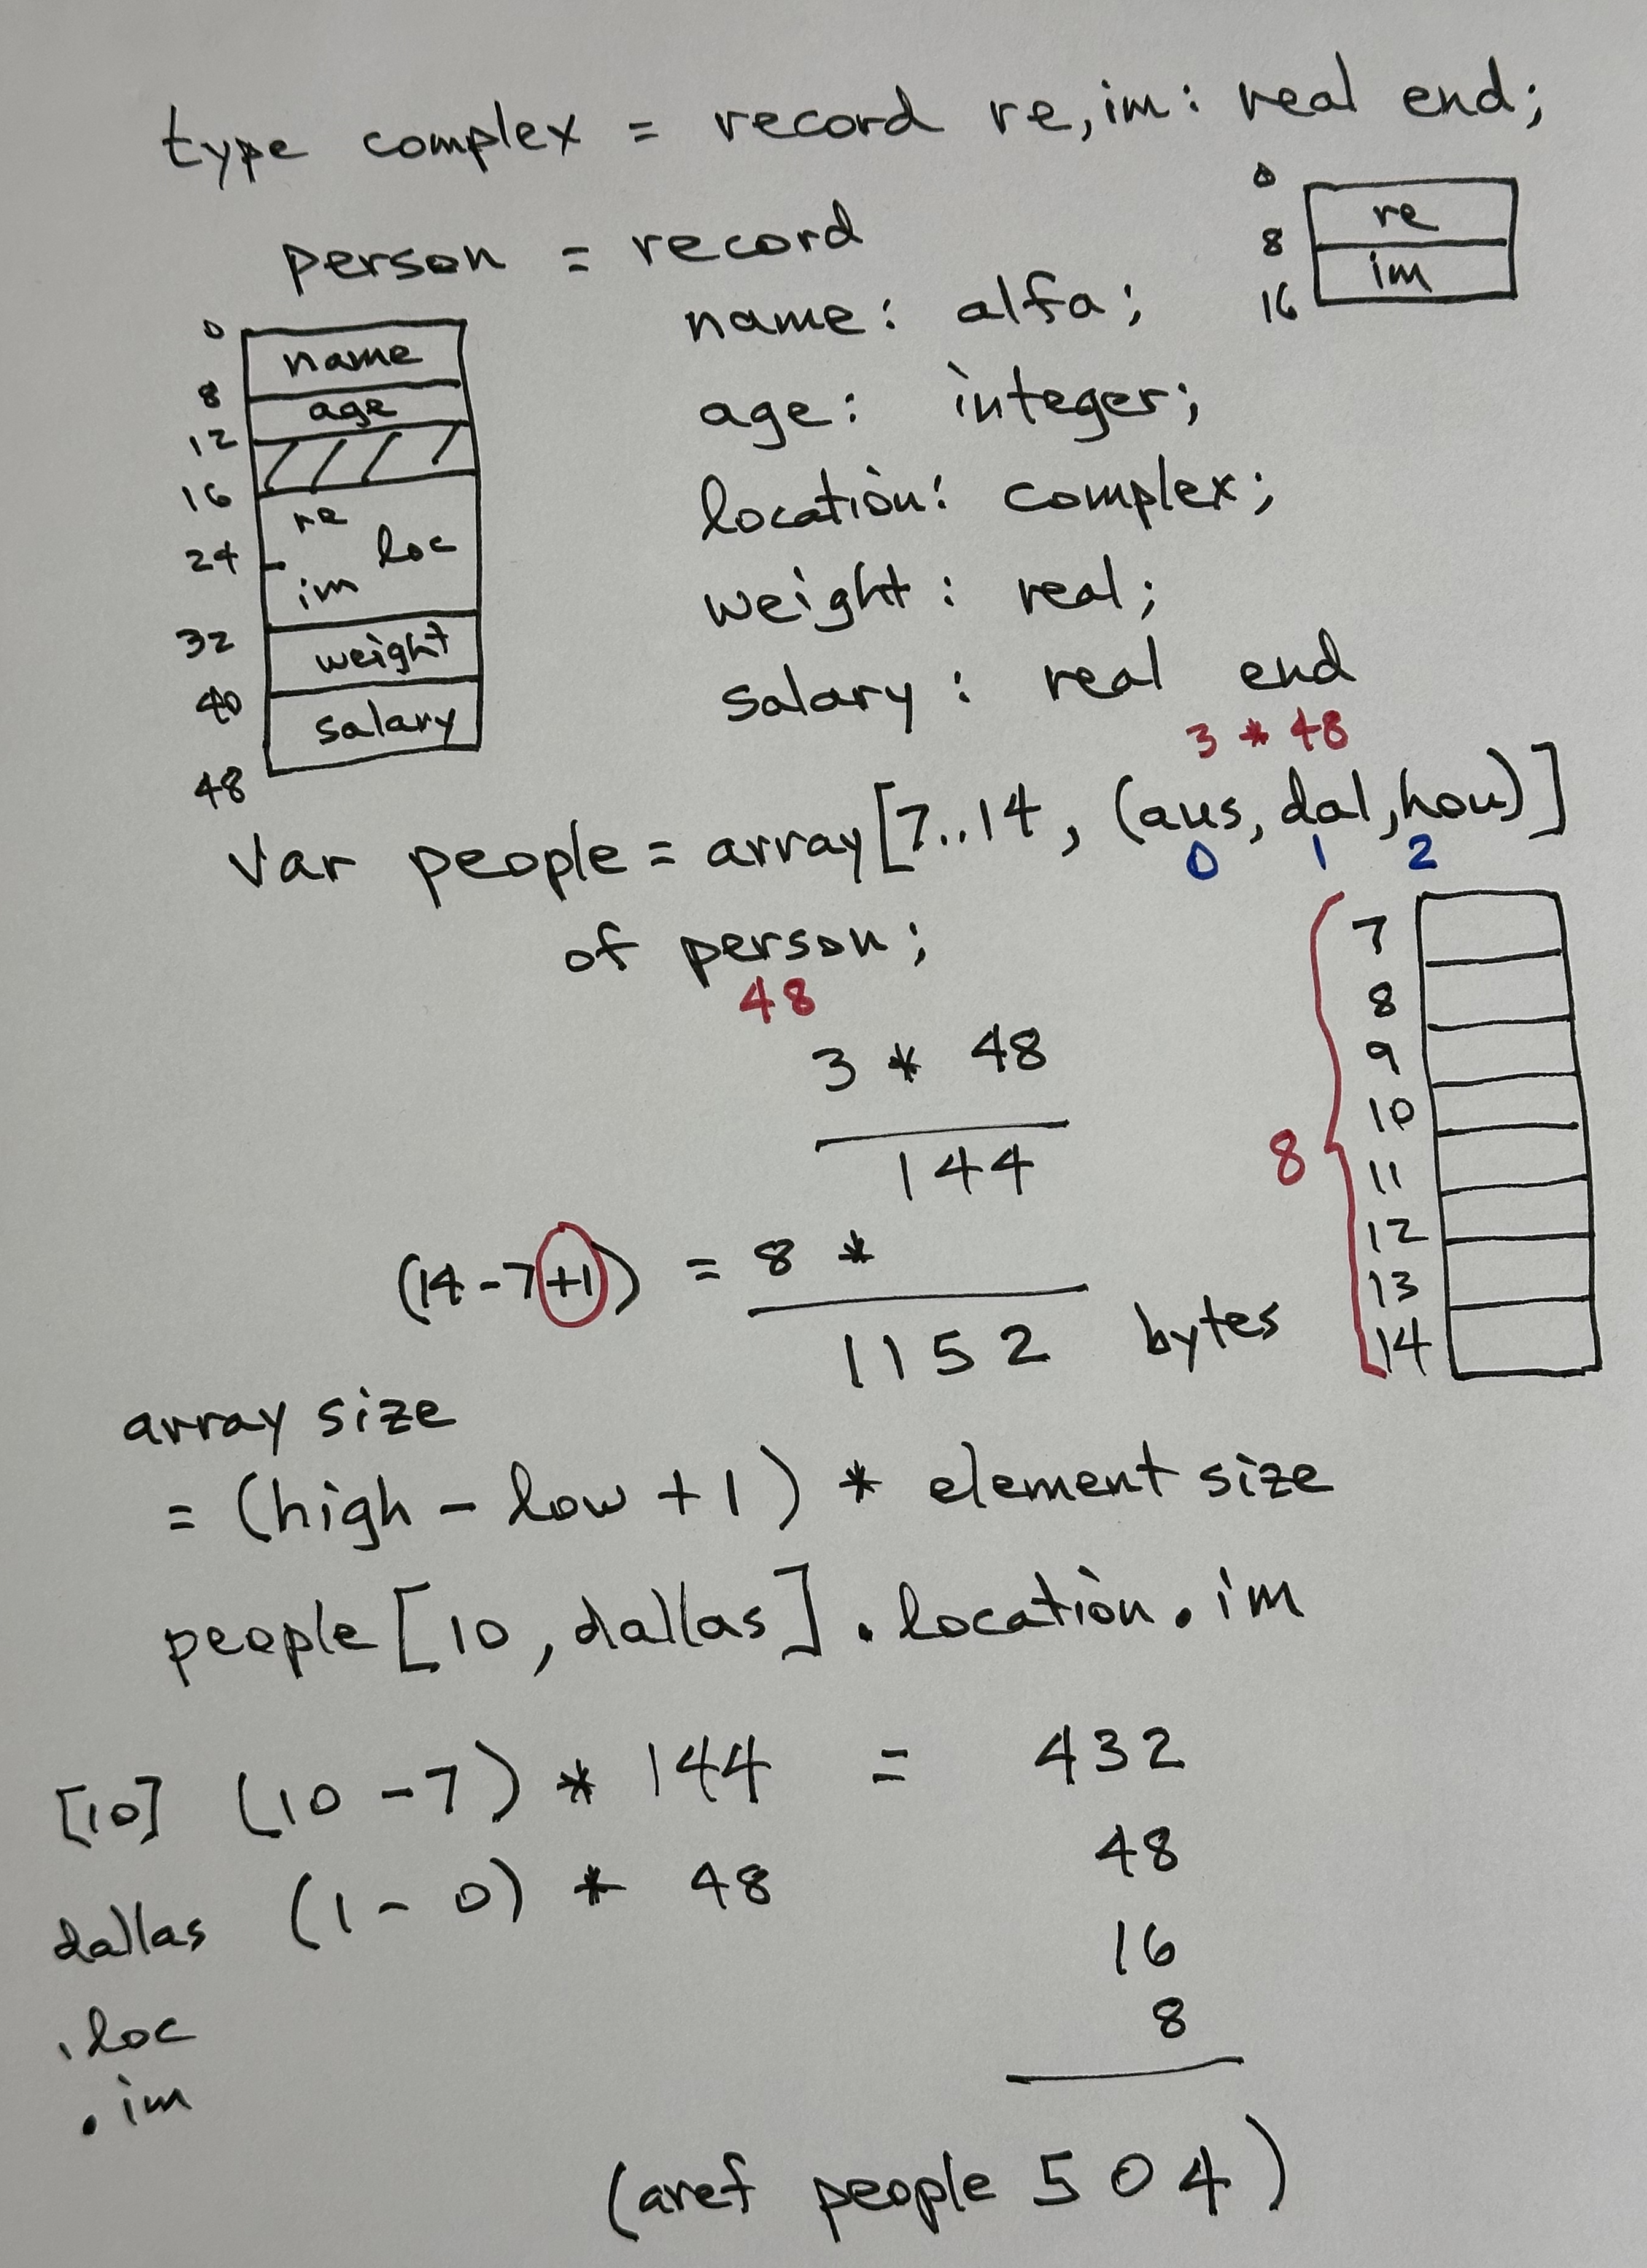 type complex = record re, im: real end;
0
re
8
im
16
person = record
name: alfa;
age: integer;
location: complex;
weight: real;
salary: real end
0
name
8
age
12
16
re
loc
24
im
32
weight
40
salary
48
3 * 48
var people = array[7..14, (aus, dal, hou)]
0 1 2
of person;
48
3 * 48
144
(14-7+1) = 8 *
1152 bytes
8
7
8
9
10
11
12
13
14
array size
= (high - low + 1) * element size
people [10, dallas] . location . im
[10] (10 - 7) * 144 = 432
dallas (1 - 0) * 48 48
.loc 16
.im 8
(aref people 504)